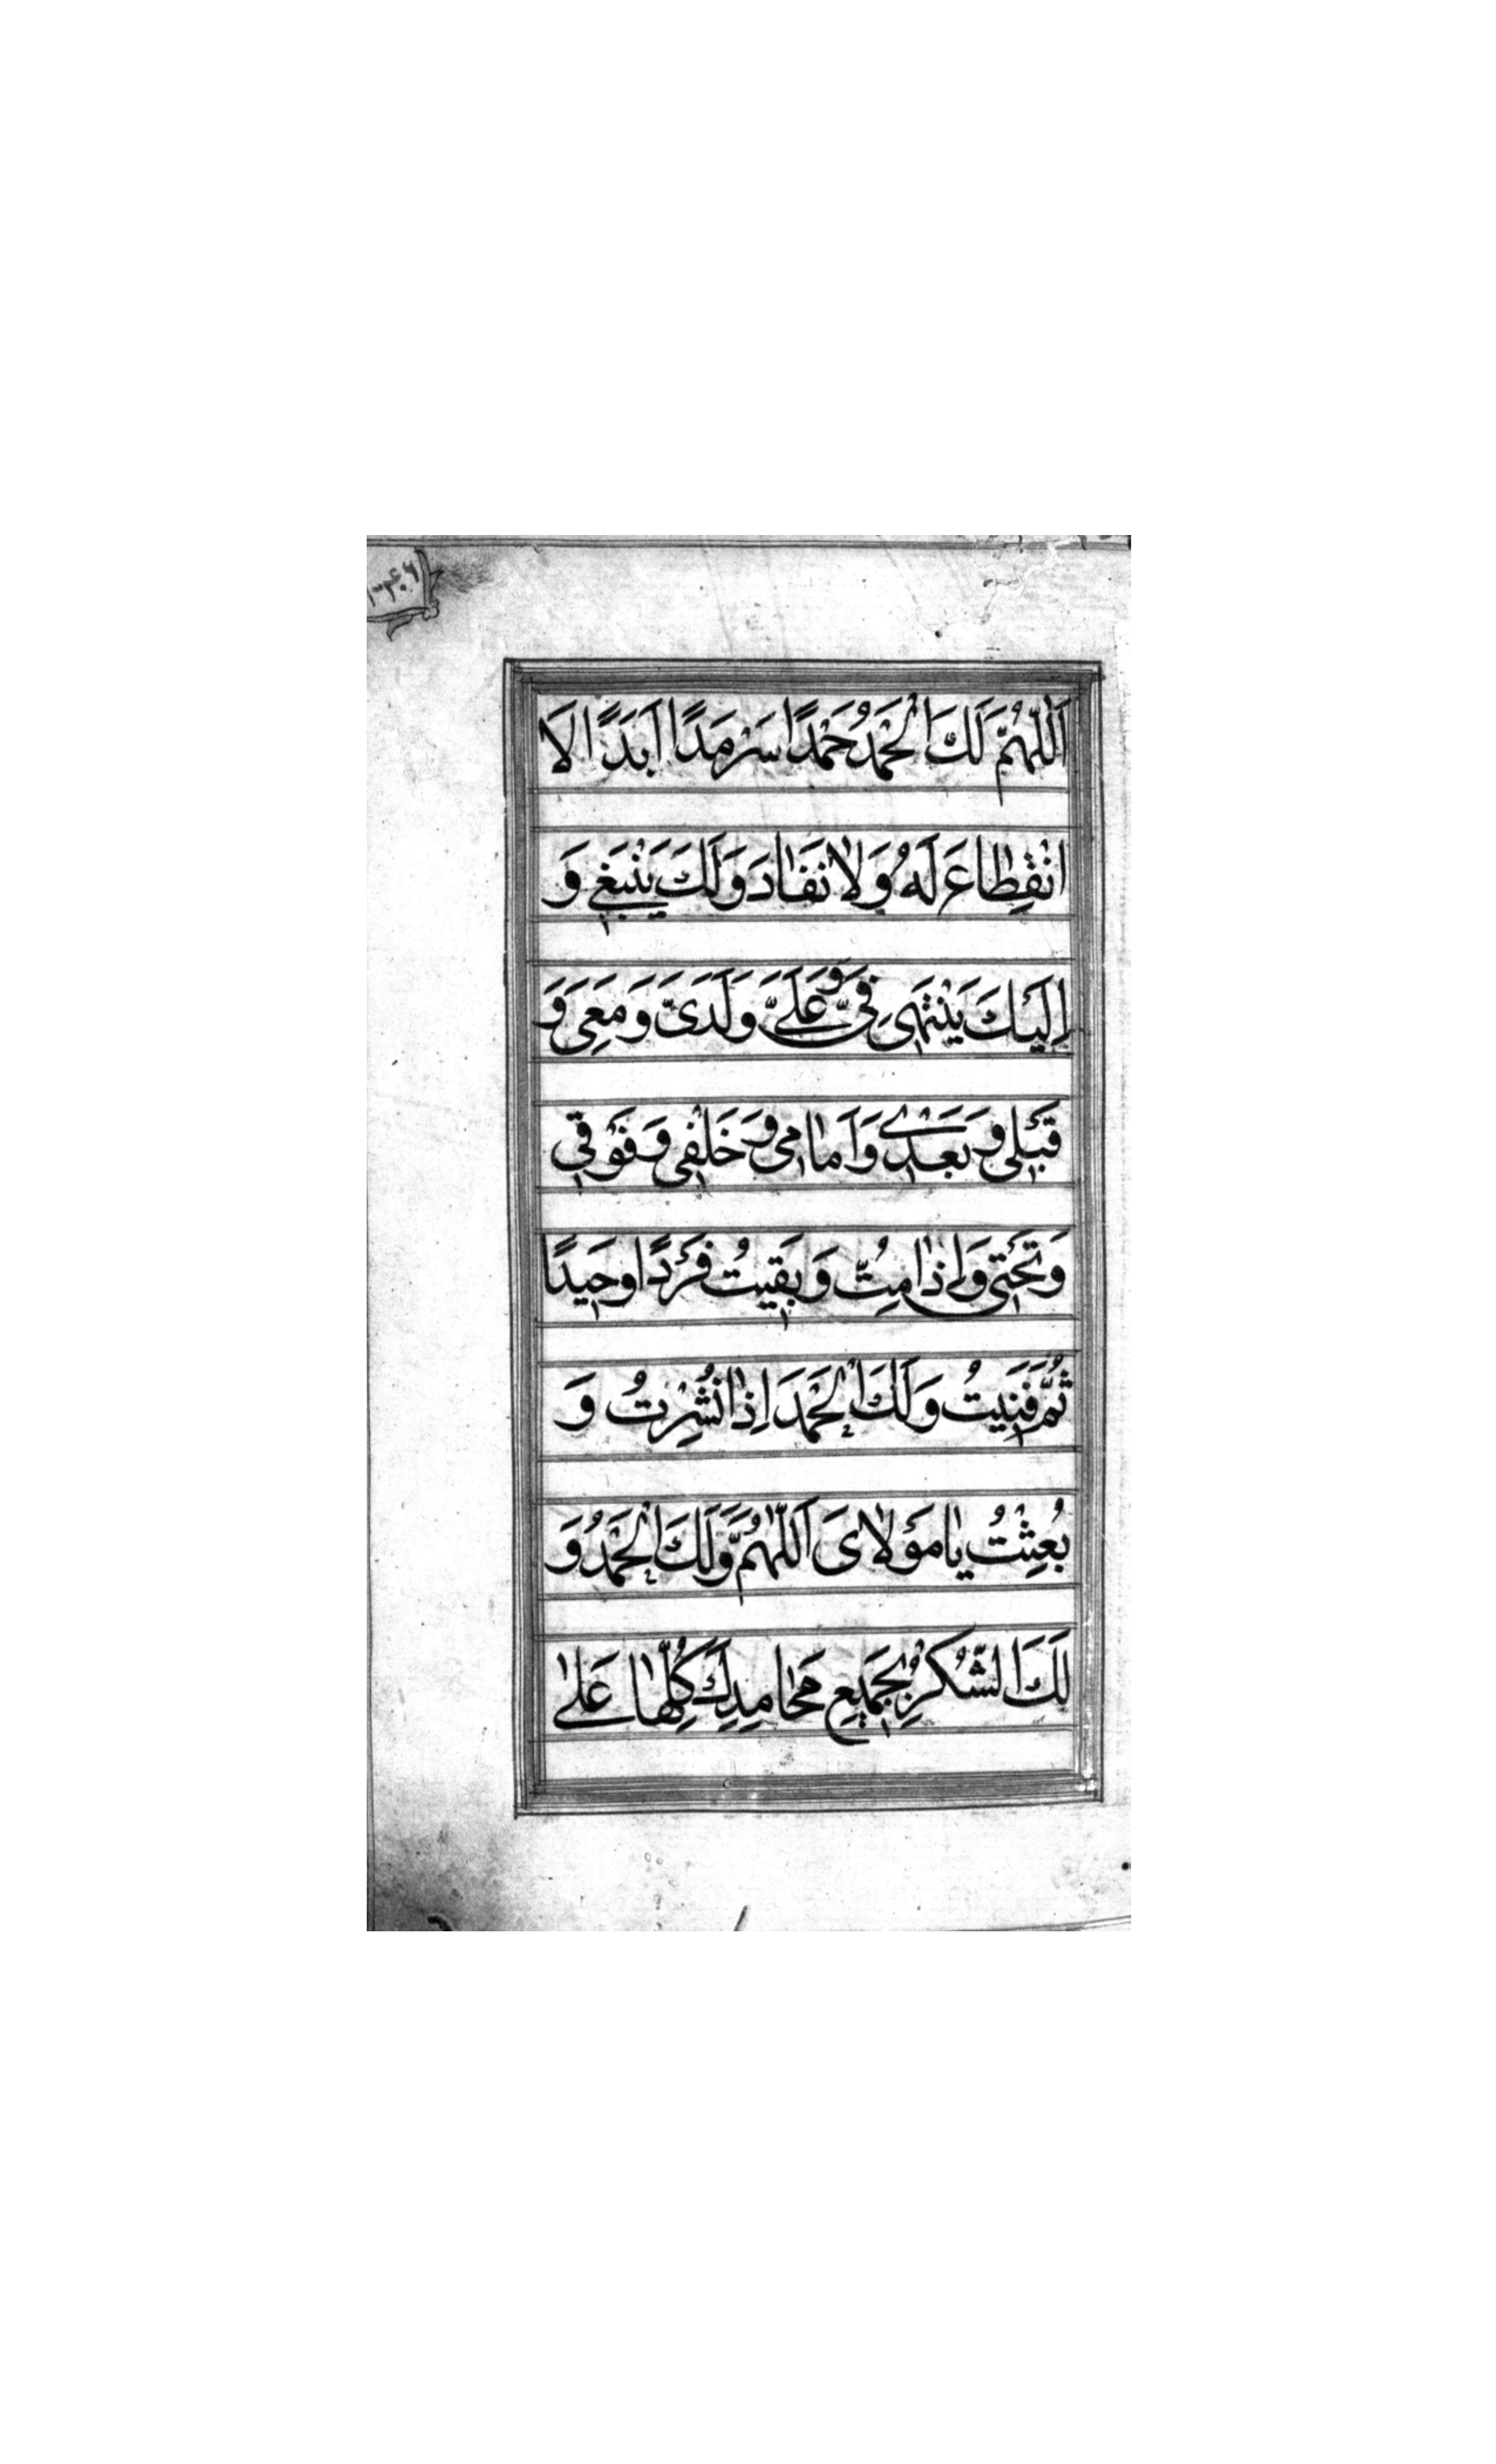 ۱۳۴۰۶
اَللّٰهُمَّ لَكَ الْحَمْدُ حَمْدًا سَرْمَدًا اَبَدًا لَا
انْقِطَاعَ لَهُ وَلَا نَفَادَ وَلَكَ يَنْبَغِي وَ
اِلَيْكَ يَنْتَهِى فِىَّ وَ عَلَىَّ وَلَدَىَّ وَ مَعِى وَ
قَبْلِى وَ بَعْدِى وَ اَمَامِى وَ خَلْفِى وَ فَوْقِى
وَ تَحْتِى وَ اِذَا مِتُّ وَ بَقِيتُ فَرْدًا وَحِيدًا
ثُمَّ فَنِيتُ وَ لَكَ الْحَمْدَ اِذَا نُشِرْتُ وَ
بُعِثْتُ يَا مَوْلَاىَ اَللّٰهُمَّ وَ لَكَ الْحَمْدُ وَ
لَكَ الشُّكْرُ بِجَمِيعِ مَحَامِدِكَ كُلِّهَا عَلٰى